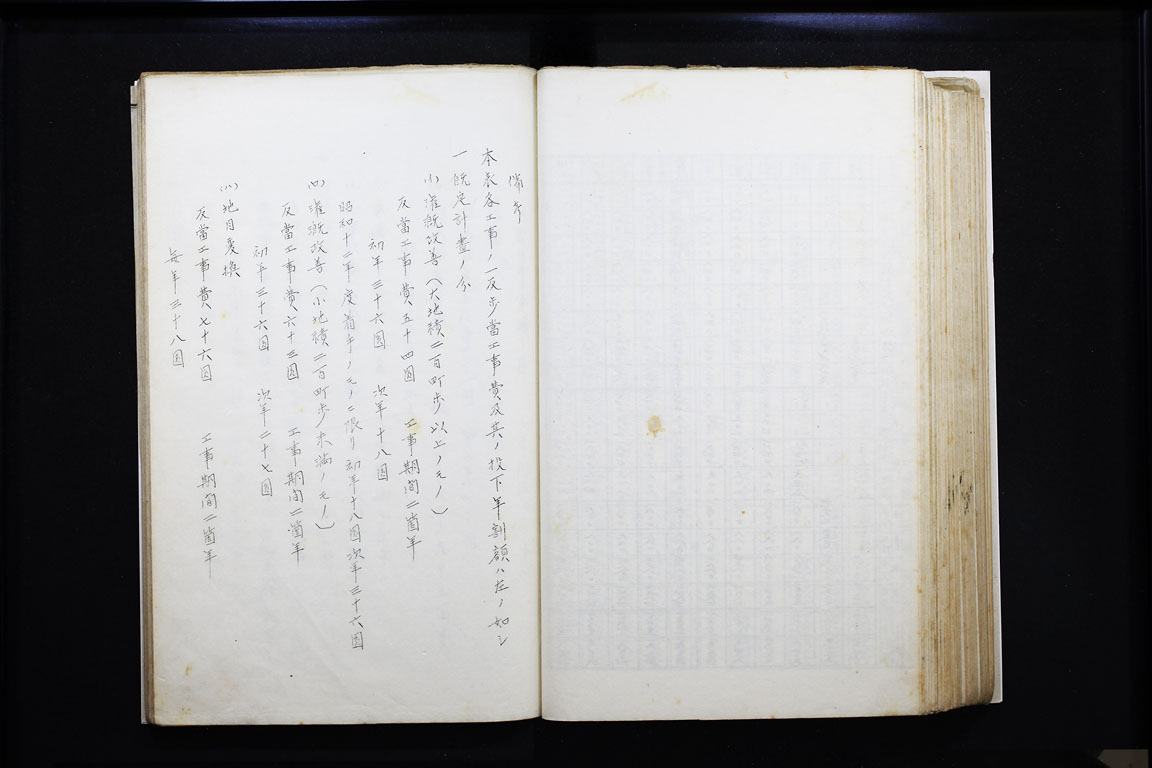 備考
本表各工事ノ一反歩當工事費及其ノ投下年割額ハ左ノ如シ
一 既定計畫ノ分
(イ) 灌漑改善(大地積二百町歩以上ノモノ)
反當工事費五十四圓 工事期間二箇年
初年三十六圓 次年十八圓
昭和十二年度着手ノモノニ限リ初年十八圓次年三十六圓
(ロ) 灌漑改善(小地積二百町歩未滿ノモノ)
反當工事費六十三圓 工事期間二箇年
初年三十六圓 次年二十七圓
(ハ) 地目変換
反當工事費七十六圓 工事期間二箇年
毎年三十八圓